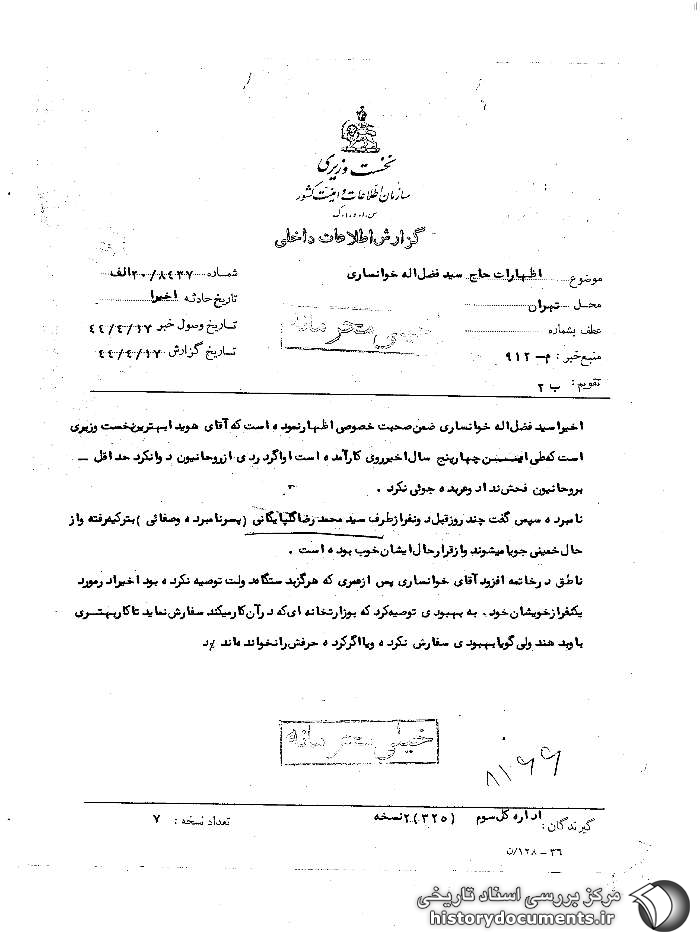 نخست وزیری
سازمان اطلاعات و امنیت کشور
س.ا.و.ا.ک
گزارش اطلاعات داخلی
موضوع اظهارات حاج سید فضل اله خوانساری
شماره ۲۰/۸۴۳۷الف
محل تهران
تاریخ حادثه اخیرا
عطف بشماره
تاریخ وصول خبر ۴۴/۴/۱۷
منبع خبر : م-۹۱۲
تاریخ گزارش ۴۴/۴/۱۷
تقویم : ب ۲
خیلی محرمانه
اخیرا سید فضل اله خوانساری ضمن صحبت خصوصی اظهار نموده است که آقای هویدا بهترین نخست وزیری
است که طی این چهار پنج سال اخیر روی کار آمده است او اگر دردی از روحانیون دوا نکرد حداقل -
بروحانیون فحش نداد و عربده جوئی نکرد .
نامبرده سپس گفت چند روز قبل دو نفر از طرف سید محمد رضا گلپایگانی (پسر نامبرده و صفائی) بترکیه رفته و از
حال خمینی جویا میشوند و از قرار حال ایشان خوب بوده است .
ناطق در خاتمه افزود آقای خوانساری پس از عمری که هرگز بدستگاه دولت توصیه نکرده بود اخیرا در مورد
یکنفر از خویشان خود . به بهبودی توصیه کرد که بوزارتخانه ای که در آن کار میکند سفارش نماید تا کار بهتری
باو بدهند ولی گویا بهبودی سفارش نکرده و یا اگر کرده حرفش را نخوانده اند
خیلی محرمانه
۸۱۶۶
گیرندگان : اداره کل سوم (۳۲۵) ۲نسخه
تعداد نسخه : ۷
۳۶ - ۱۲۸/ن
مرکز بررسی اسناد تاریخی
historydocuments.ir